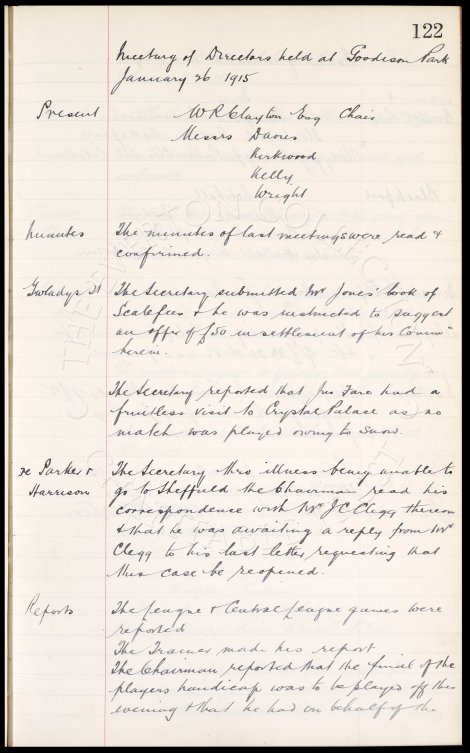 122
Meeting of Directors held at Goodison Park
January 26 1915
Present W R Clayton Esq Chair
Messrs Davies
Kirkwood
Kelly
Wright
Minutes The minutes of last meetings were read &
confirmed.
Gwladys St The Secretary submitted Mr Jones' book of
Scalefees & he was instructed to suggest
an offer of £50 in settlement of his Commn
herein.
The Secretary reported that Jno Fare had a
fruitless visit to Crystal Palace as no
match was played owing to snow.
re Parker & The Secretary thro illness being unable to
Harrison go to Sheffield the Chairman read his
correspondence with Mr J C Clegg thereon
& that he was awaiting a reply from Mr
Clegg to his last letter requesting that
this case be reopened.
Reports The League & Central League games were
reported
The Trainer made his report
The Chairman reported that the final of the
players handicap was to be played off this
evening & that he had on behalf of the